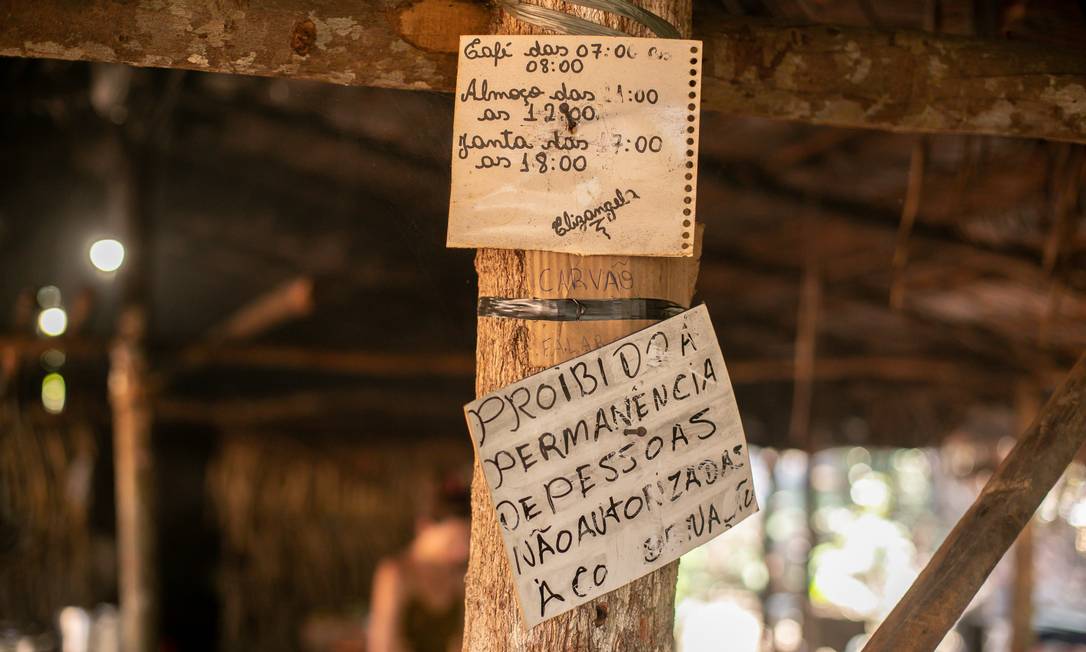 Café das 07:00 as
08:00
Almoço das 11:00
as 12:00.
Janta das 17:00
as 18:00
Elizangela
CARVÃO
FALAR
PROIBIDO Á
PERMANÊNCIA
DE PESSOAS
NÃO AUTORIZADAS